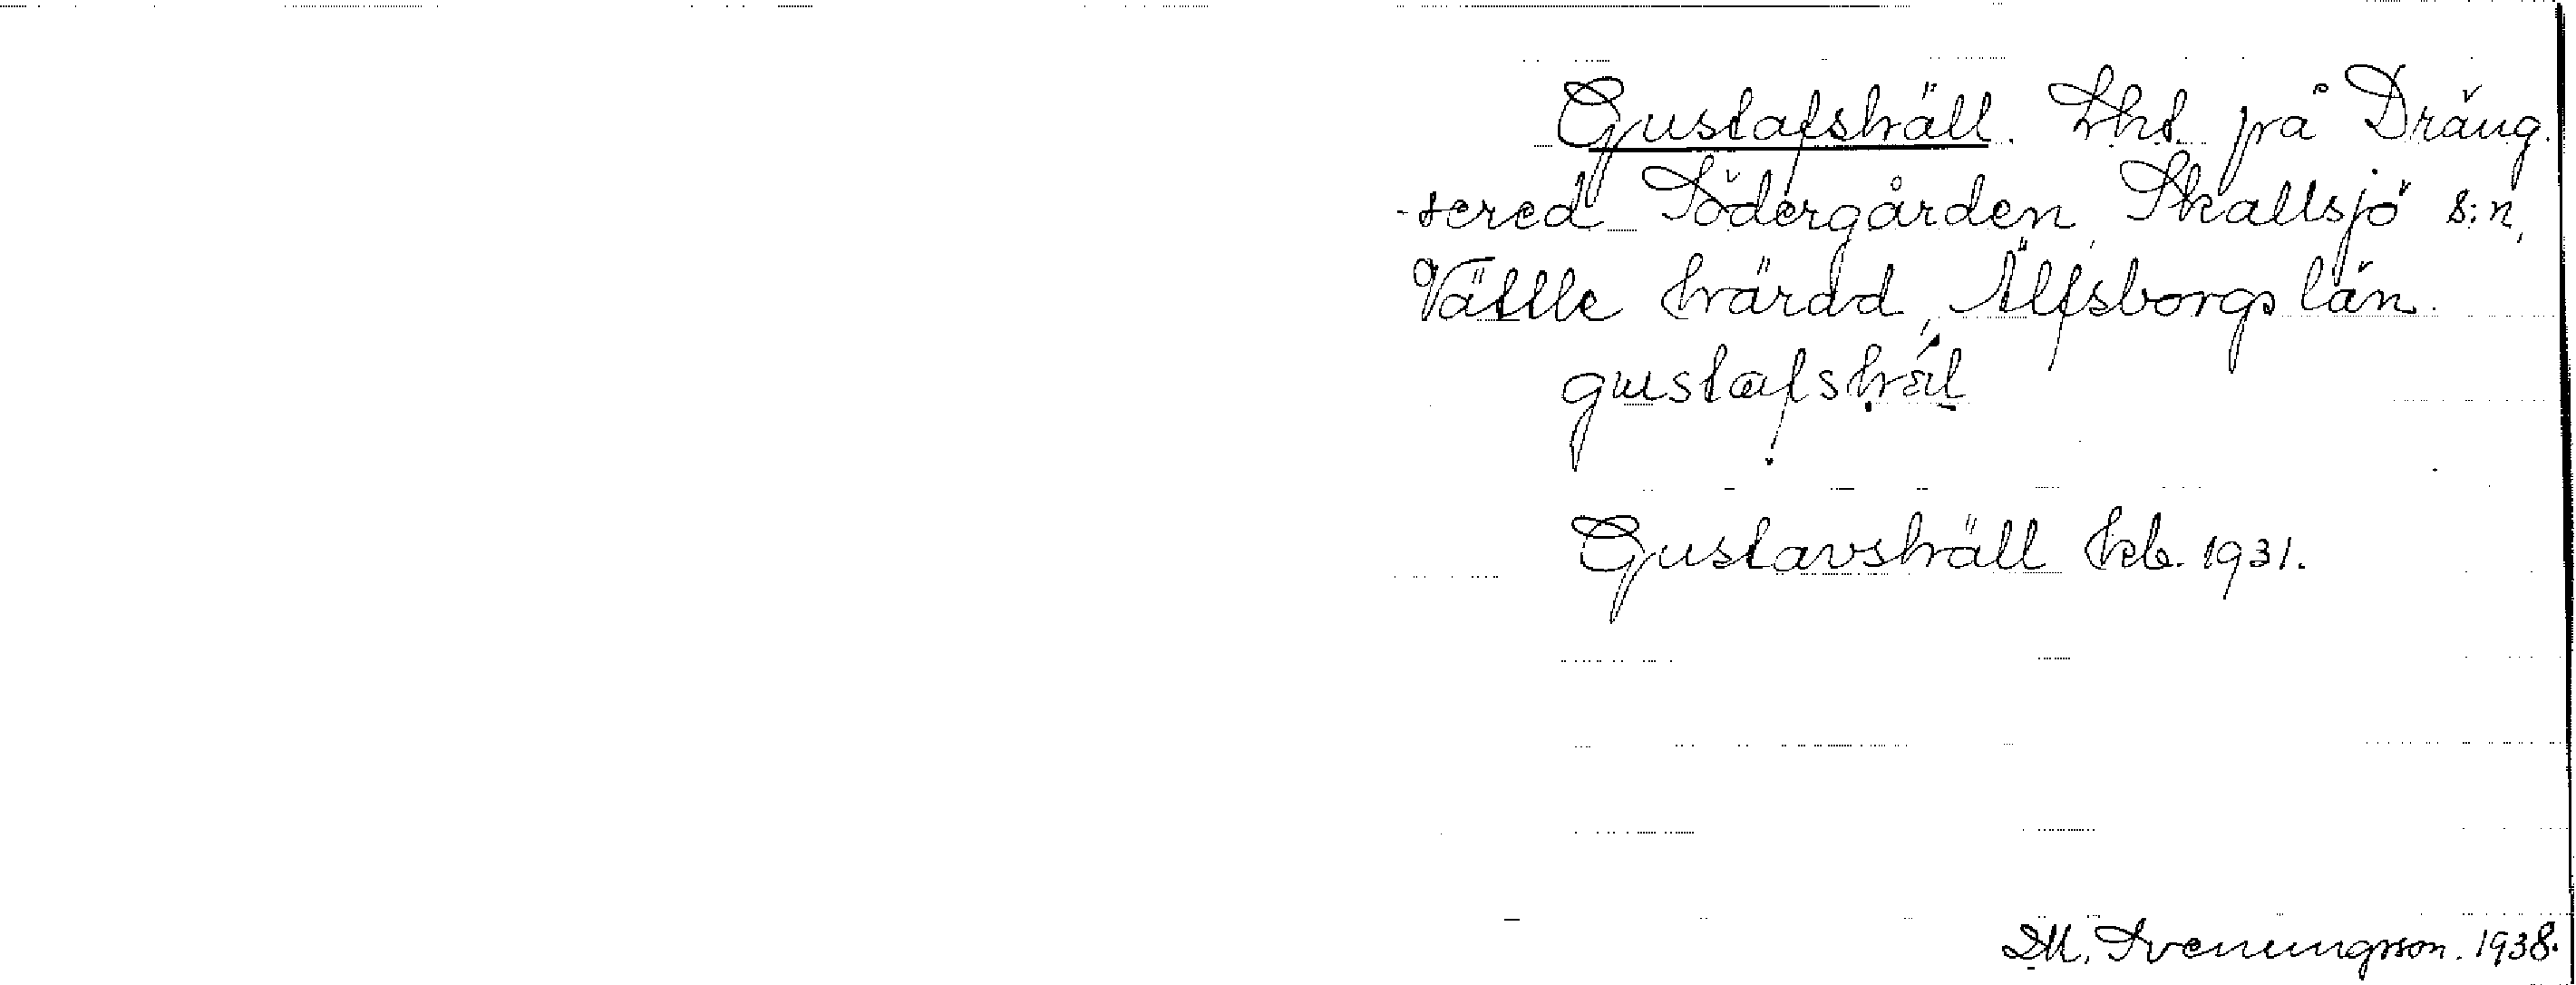 Gustafshäll. Lht. på Dräng-
-sered Södergården, Skallsjö s:n,
Vättle härad, Älfsborgs län.
gustafshäl
Gustavshäll kb. 1931.
M. Sveningsson. 1938.